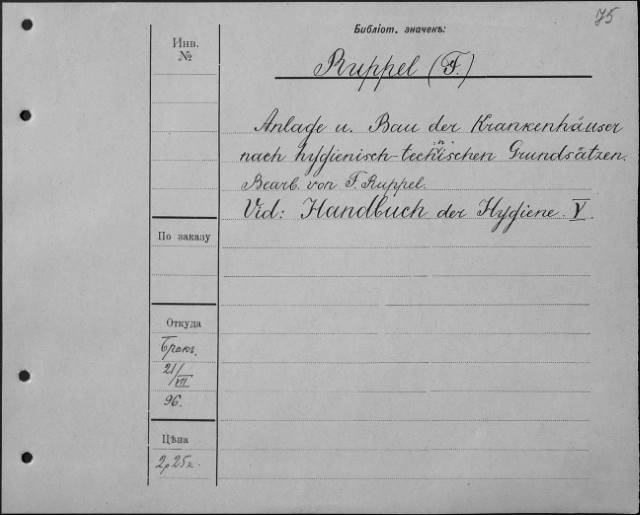 75
Библіот. значекъ:
Инв.
№
Ruppel (F.)
Anlage u. Bau der Krankenhäuser
nach hygienisch-technischen Grundsätzen.
Bearb. von F. Ruppel.
Vid: Handbuch der Hygiene. V.
По заказу
Откуда
21/VII
96.
Цѣна
2р 25к.